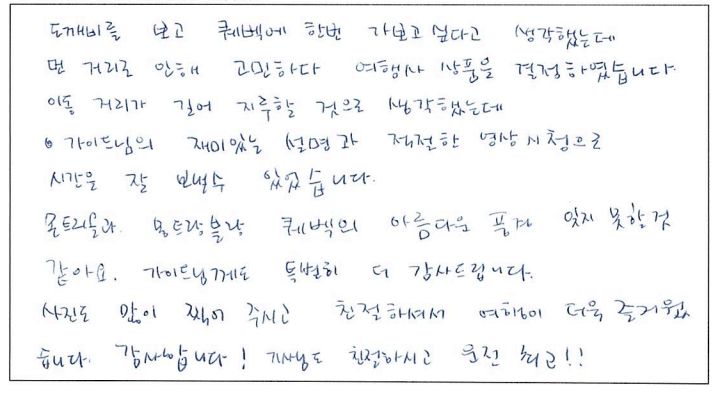 도깨비를 보고 퀘벡에 한번 가보고 싶다고 생각했는데
먼 거리로 인해 고민하다 여행사 상품을 결정하였습니다.
이동 거리가 길어 지루할 것으로 생각했는데
가이드님의 재미있는 설명과 적절한 영상시청으로
시간을 잘 보낼수 있었습니다.
몬트리올과 몽트랑블랑 퀘벡의 아름다운 풍경 잊지 못할것
같아요. 가이드님께도 특별히 더 감사드립니다.
사진도 많이 찍어 주시고 친절하셔서 여행이 더욱 즐거웠
습니다. 감사합니다! 기사님도 친절하시고 운전 최고!!